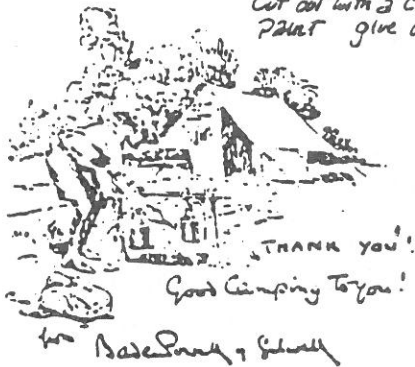 cut out with a
paint give
THANK YOU!
Good Camping To you!
from Baden Powell of Gilwell